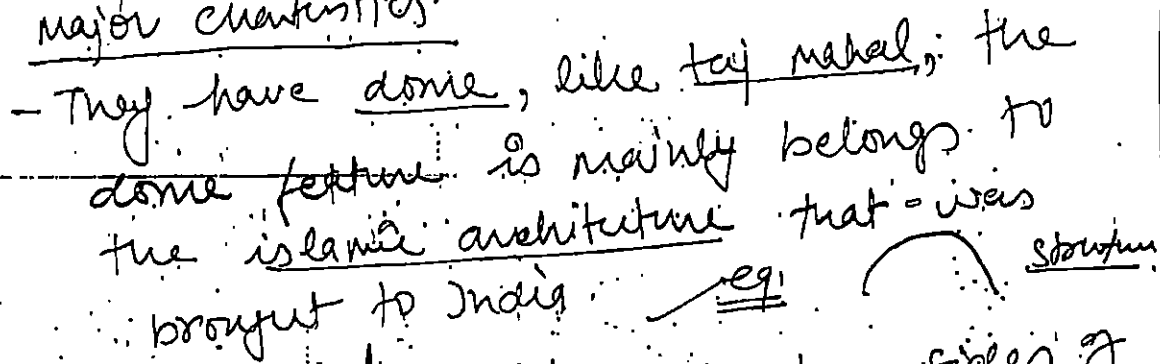 Major
- They have dome, like taj mahal, the
dome feature is mainly belongs to
the islamic architecture that was
brought to India. eg.
of